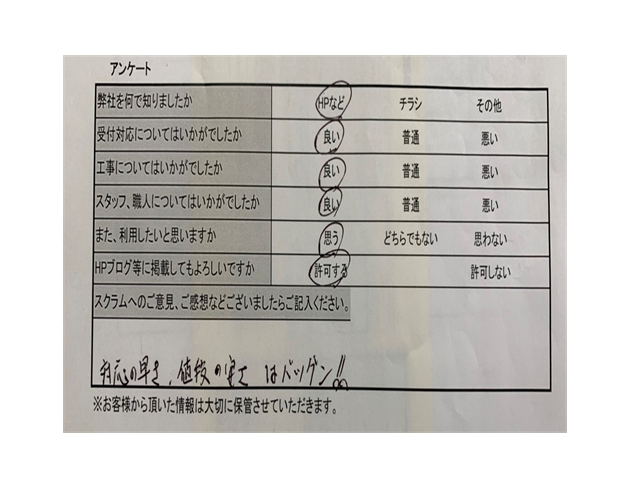 アンケート
弊社を何で知りましたか HPなど チラシ その他
受付対応についてはいかがでしたか 良い 普通 悪い
工事についてはいかがでしたか 良い 普通 悪い
スタッフ、職人についてはいかがでしたか 良い 普通 悪い
また、利用したいと思いますか 思う どちらでもない 思わない
HPブログ等に掲載してもよろしいですか 許可する 許可しない
スクラムへのご意見、ご感想などございましたらご記入ください。
対応の早さ、値段の安さはバツグン!!
※お客様から頂いた情報は大切に保管させていただきます。